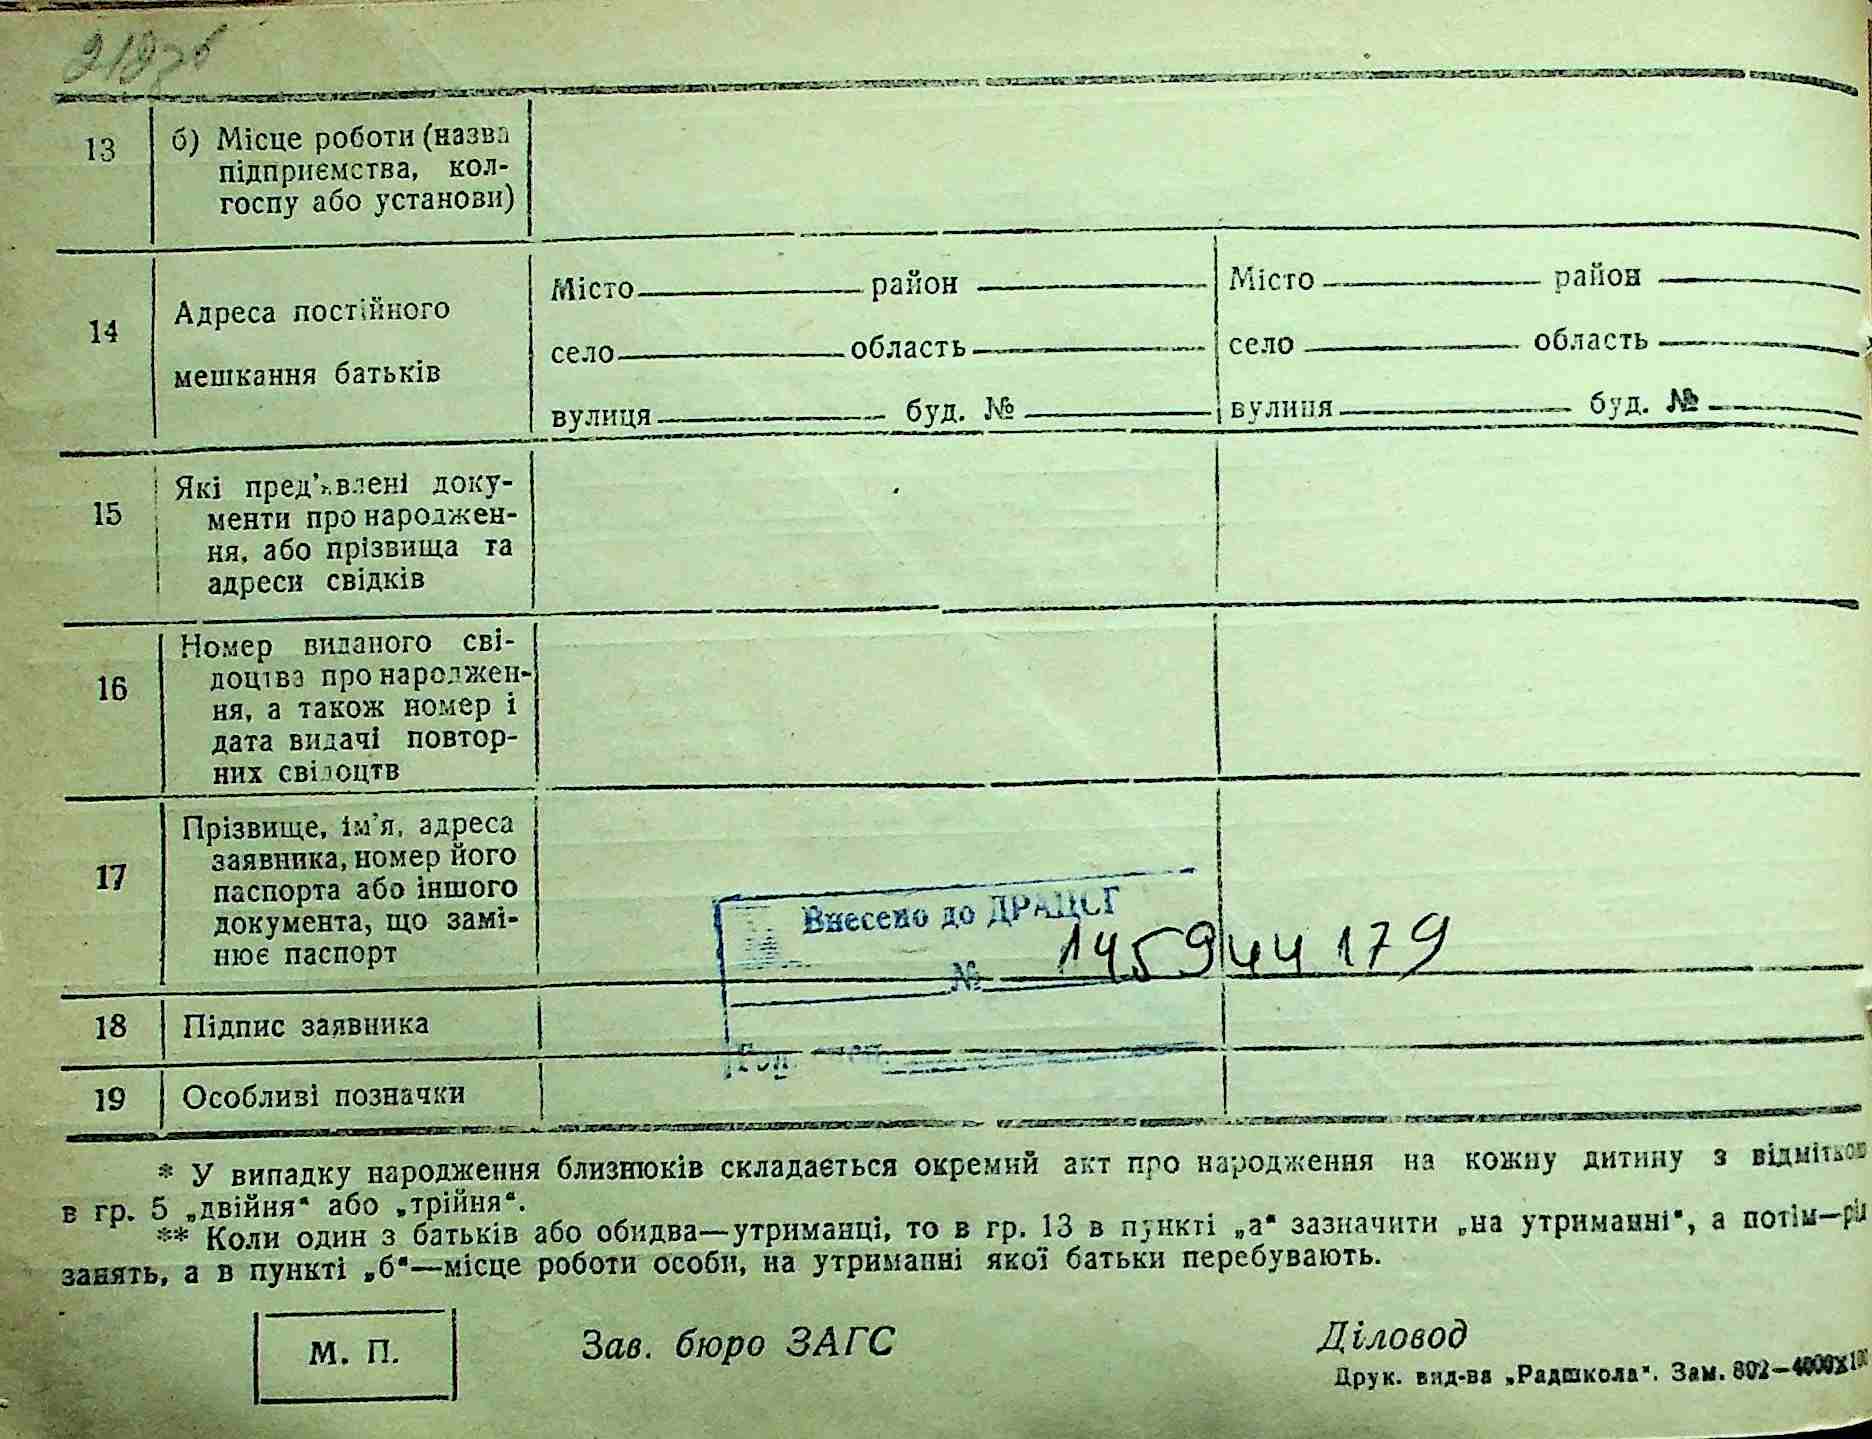 13
б) Місце роботи (назва
підприємства, кол-
госпу або установи)
14
Адреса постійного
мешкання батьків
Місто район
село область
вулиця буд. №
Місто район
село область
вулиця буд. №
15
Які пред'явлені доку-
менти про народжен-
ня, або прізвища та
адреси свідків
16
Номер виданого сві-
доцтва про народжен-
ня, а також номер і
дата видачі повтор-
них свідоцтв
17
Прізвище, ім'я, адреса
заявника, номер його
паспорта або іншого
документа, що замі-
нює паспорт
Внесено до ДРАЦСГ
№ 145944179
18
Підпис заявника
19
Особливі позначки
* У випадку народження близнюків складається окремий акт про народження на кожну дитину з відміткою
в гр. 5 „двійня“ або „трійня“.
** Коли один з батьків або обидва—утриманці, то в гр. 13 в пункті „а“ зазначити „на утриманні“, а потім—рід
занять, а в пункті „б“—місце роботи особи, на утриманні якої батьки перебувають.
М. П.
Зав. бюро ЗАГС
Діловод
Друк. вид-ва „Радшкола“. Зам. 802—4000X100